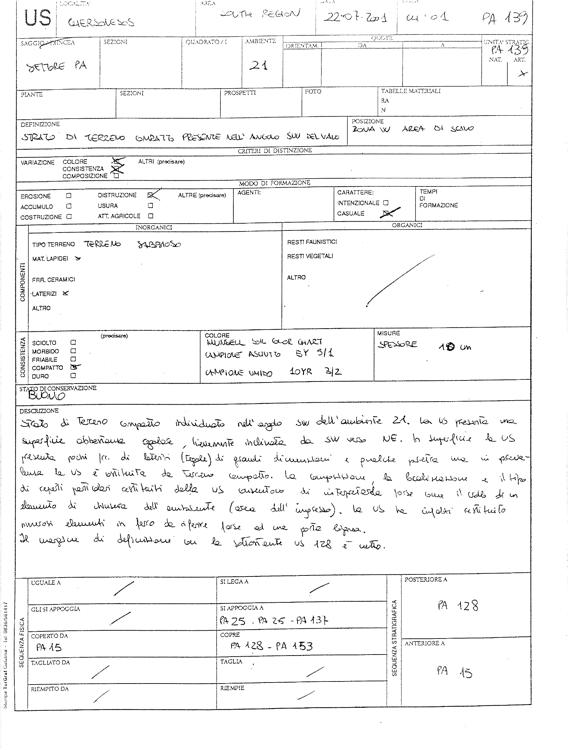 US
LOCALITÀ
CHERSONESOS
AREA
SOUTH REGION
22-07-2001
PA 139
SAGGIO/TRINCEA
SETTORE PA
SEZIONI
QUADRATO/I
AMBIENTE
21
QUOTE
ORIENTAM.
DA
A
UNITA' STRATIG.
PA 139
NAT. ART.
PIANTE
SEZIONI
PROSPETTI
FOTO
TABELLE MATERIALI
RA
N
DEFINIZIONE
STRATO DI TERRENO COMPATTO PRESENTE NELL'ANGOLO SW DEL VANO
POSIZIONE
ZONA W AREA DI SCAVO
CRITERI DI DISTINZIONE
VARIAZIONE COLORE ALTRI (precisare)
CONSISTENZA
COMPOSIZIONE
MODO DI FORMAZIONE
EROSIONE DISTRUZIONE ALTRE (precisare)
ACCUMULO USURA
COSTRUZIONE ATT. AGRICOLE
AGENTI:
CARATTERE:
INTENZIONALE
CASUALE
TEMPI
DI
FORMAZIONE
INORGANICI
ORGANICI
COMPONENTI
TIPO TERRENO TERRENO SABBIOSO
MAT. LAPIDEI x
FRR. CERAMICI
LATERIZI x
ALTRO
RESTI FAUNISTICI
RESTI VEGETALI
ALTRO
CONSISTENZA
(precisare)
SCIOLTO
MORBIDO
FRIABILE
COMPATTO
DURO
COLORE
MUNSELL SOIL COLOR CHART
CAMPIONE ASCIUTTO 5Y 5/1
CAMPIONE UMIDO 10YR 3/2
MISURE
SPESSORE 10 cm
STATO DI CONSERVAZIONE
BUONO
DESCRIZIONE
Strato di terreno compatto individuato nell'angolo SW dell'ambiente 21. La US presenta una
superficie abbastanza regolare, lievemente inclinata da SW verso NE. In superficie la US
presenta pochi fr. di laterizi (tegole) di grandi dimensioni e qualche pietra ma in preva-
lenza la US è costituita da terreno compatto. La composizione, la localizzazione e il tipo
di reperti particolari restituiti dalla US consentono di interpretarla forse come il crollo di un
elemento di chiusura dell'ambiente (area dell'ingresso). La US ha infatti restituito
numerosi elementi in ferro da riferire forse ad una porta lignea.
Il margine di definizione con la sottostante US 128 è netto.
SEQUENZA FISICA
UGUALE A
SI LEGA A
GLI SI APPOGGIA
SI APPOGGIA A
PA 25 - PA 26 - PA 137
COPERTO DA
PA 15
COPRE
PA 128 - PA 153
TAGLIATO DA
TAGLIA
RIEMPITO DA
RIEMPIE
SEQUENZA STRATIGRAFICA
POSTERIORE A
PA 128
ANTERIORE A
PA 15